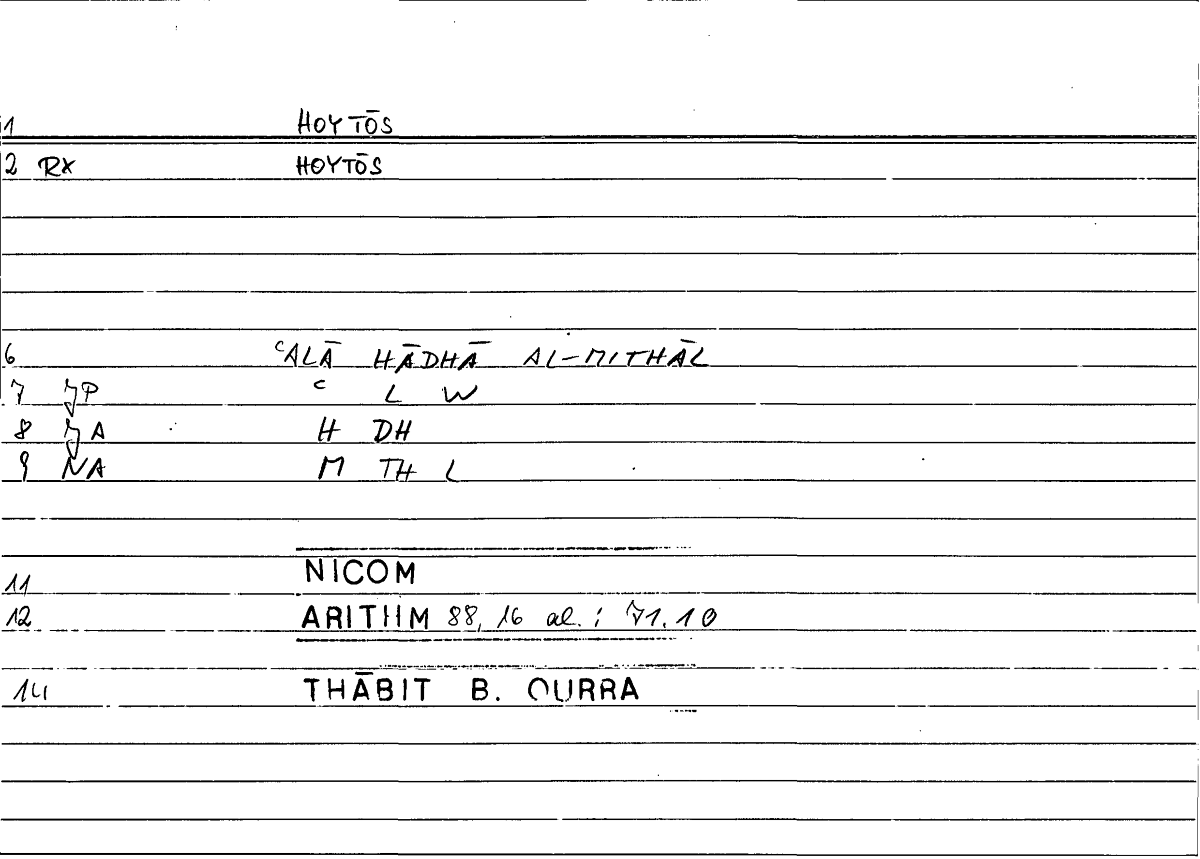 1 HOYTŌS
2 RX HOYTŌS
6 ʿALĀ HĀDHĀ AL-MITHĀL
7 JP ʿ L W
8 JA H DH
9 NA M TH L
11 NICOM
12 ARITHM 88, 16 al. ; 71.10
14 THĀBIT B. QURRA